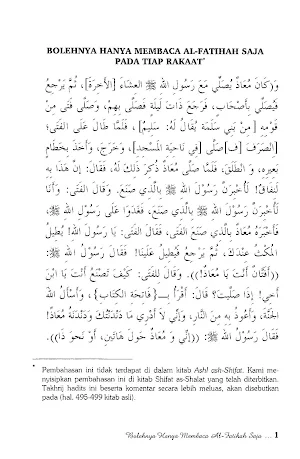 BOLEHNYA HANYA MEMBACA AL-FATIHAH SAJA
PADA TIAP RAKAAT*
وَ(كَانَ مُعَاذٌ يُصَلِّي مَعَ رَسُولِ اللهِ ﷺ العِشَاءَ [الآخِرَةَ]، ثُمَّ يَرْجِعُ
فَيُصَلِّي بِأَصْحَابِهِ، فَرَجَعَ ذَاتَ لَيْلَةٍ فَصَلَّى بِهِمْ، وَصَلَّى فَتًى مِنْ
قَوْمِهِ [مِنْ بَنِي سَلَمَةَ يُقَالُ لَهُ: سَلِيمٌ]، فَلَمَّا طَالَ عَلَى الفَتَى؛
[انْصَرَفَ فَـ]صَلَّى [فِي نَاحِيَةِ المَسْجِدِ]، وَخَرَجَ، وَأَخَذَ بِخِطَامِ
بَعِيرِهِ، وَانْطَلَقَ، فَلَمَّا صَلَّى مُعَاذٌ ذُكِرَ ذَلِكَ لَهُ، فَقَالَ: إِنَّ هَذَا بِهِ
لَنِفَاقٌ! لَأُخْبِرَنَّ رَسُولَ اللهِ ﷺ بِالَّذِي صَنَعَ. وَقَالَ الفَتَى: وَأَنَا
لَأُخْبِرَنَّ رَسُولَ اللهِ ﷺ بِالَّذِي صَنَعَ، فَغَدَوْا عَلَى رَسُولِ اللهِ ﷺ،
فَأَخْبَرَهُ مُعَاذٌ بِالَّذِي صَنَعَ الفَتَى، فَقَالَ الفَتَى: يَا رَسُولَ اللهِ! يُطِيلُ
المُكْثَ عِنْدَكَ، ثُمَّ يَرْجِعُ فَيُطِيلُ عَلَيْنَا! فَقَالَ رَسُولُ اللهِ ﷺ:
((أَفَتَّانٌ أَنْتَ يَا مُعَاذُ؟!)). وَقَالَ لِلْفَتَى: كَيْفَ تَصْنَعُ أَنْتَ يَا ابْنَ
أَخِي! إِذَا صَلَّيْتَ؟ قَالَ: أَقْرَأُ بِـ {فَاتِحَةِ الْكِتَابِ}، وَأَسْأَلُ اللهَ
الجَنَّةَ، وَأَعُوذُ بِهِ مِنَ النَّارِ، وَإِنِّي لَا أَدْرِي مَا دَنْدَنَتُكَ وَدَنْدَنَةُ مُعَاذٍ!
فَقَالَ رَسُولُ اللهِ ﷺ: ((إِنِّي وَمُعَاذٌ حَوْلَ هَاتَيْنِ، أَوْ نَحْوَ ذَا)).
* Pembahasan ini tidak terdapat di dalam kitab Ashl ash-Shifat. Kami me-
nyisipkan pembahasan ini di kitab Shifat as-Shalat yang telah diterbitkan.
Takhrij hadits ini beserta komentar secara lebih meluas, akan disebutkan
pada (hal. 495-499 kitab asli).
Bolehnya Hanya Membaca Al-Fatihah Saja ... 1